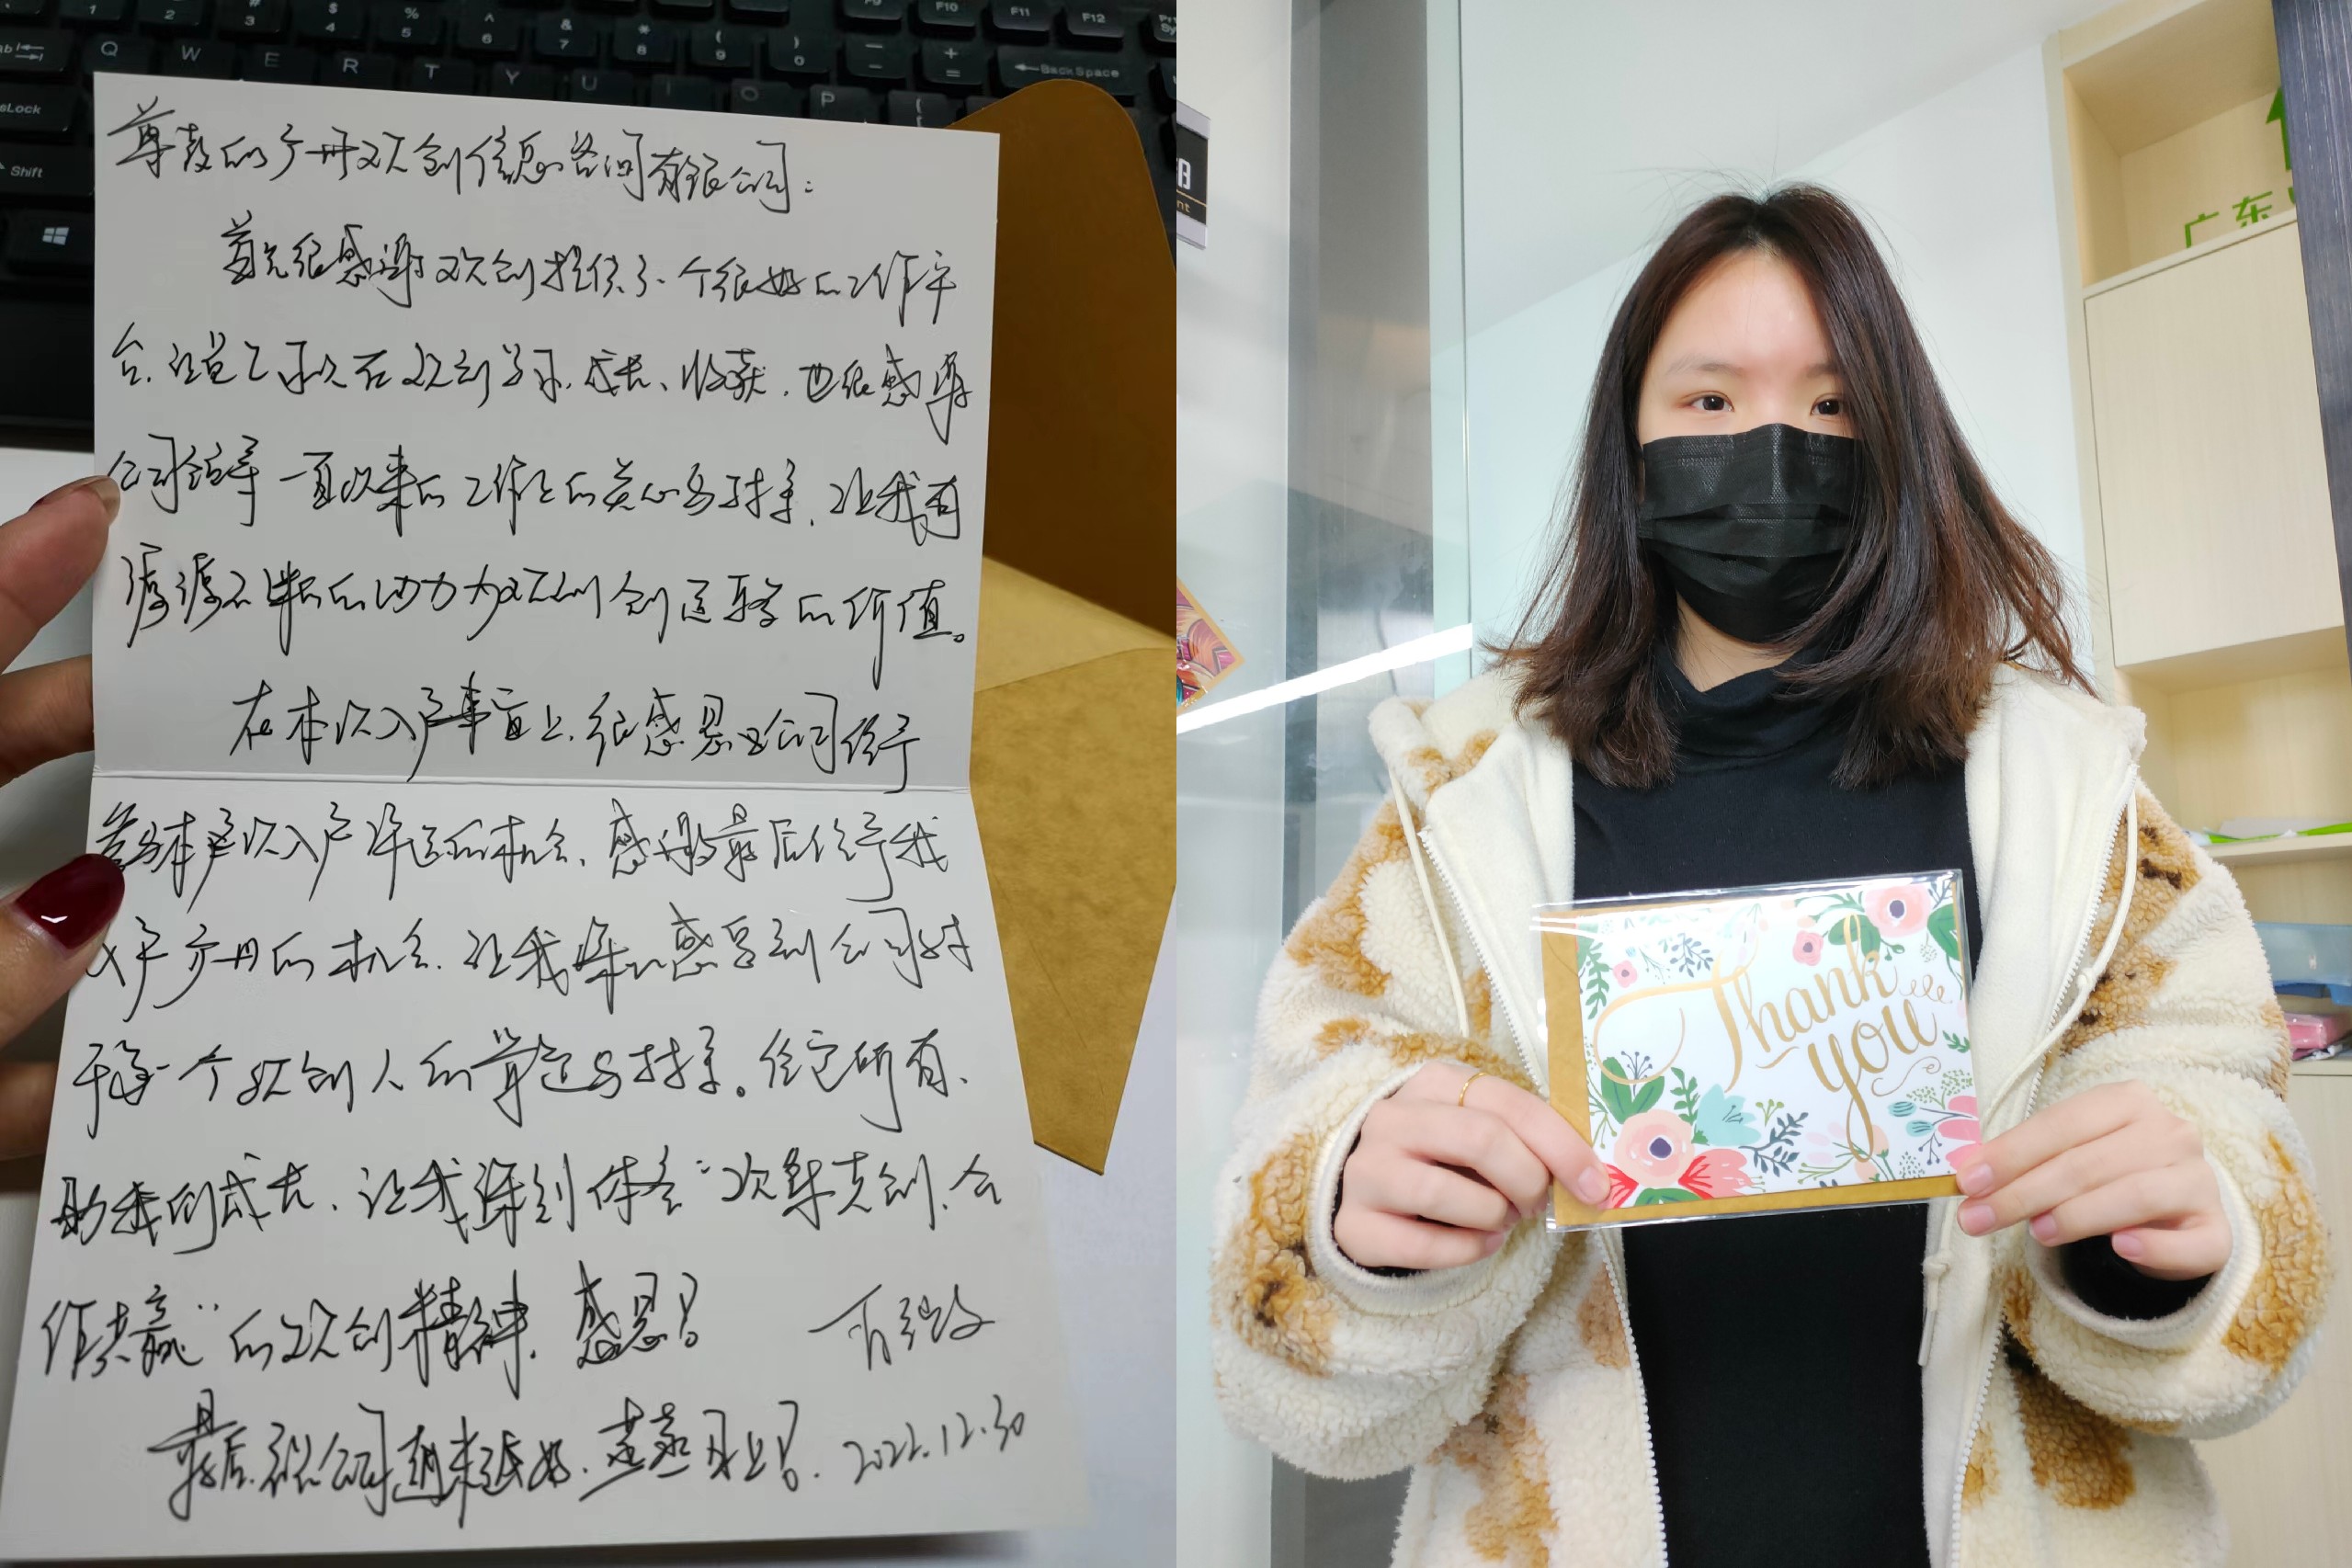 尊敬的广州欢创信息咨询有限公司：
首先很感谢欢创提供了一个很好的工作平
台，让自己可以在欢创学习、成长、收获，也很感激
公司领导一直以来的工作上的关心与扶持，让我有
源源不断的动力为欢创创造更多的价值。
在本次入户事宜上，很感恩公司给予
参与本次入户评选的机会，感谢最后给予我
入户广州的机会，让我深深感受到公司对
于每一个欢创人的肯定与扶持。给它所有、
助我们成长，让我深刻体会“欢聚共创、合
作共赢”的欢创精神，感恩！
最后，祝公司越来越好，蒸蒸日上！2022.12.30
Thank
you
广东
nt
Q W E R T Y U I O P
BackSpace
Shift
F10 F11 F12